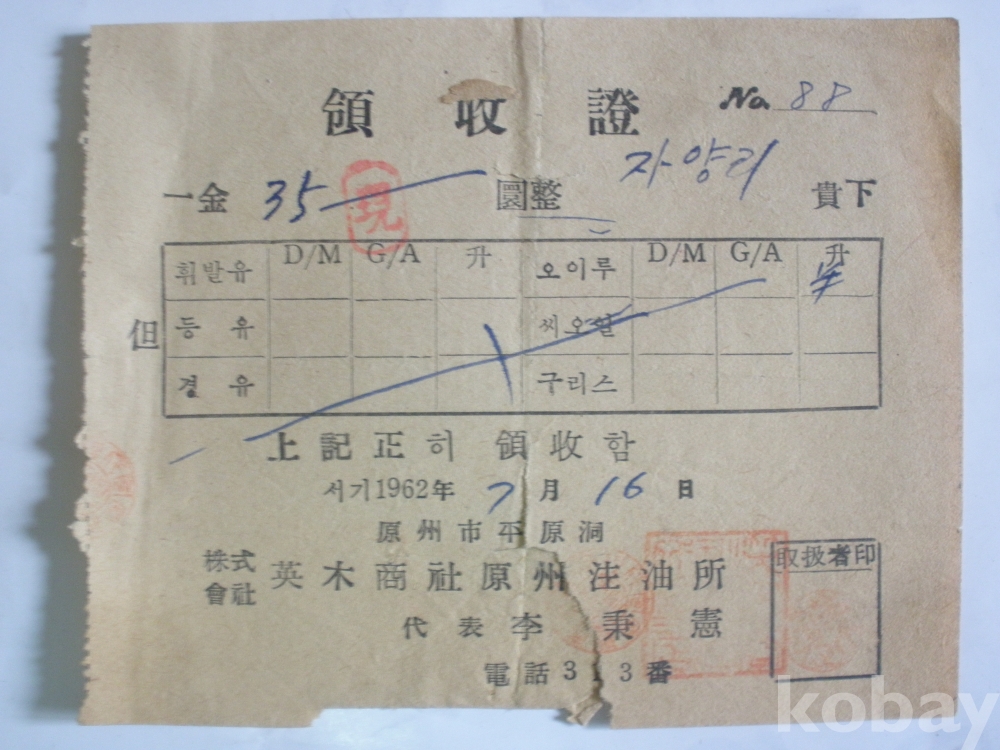 領 收 證 No. 88
一金 35 現 圜整 자양리 貴下
D/M G/A 升 D/M G/A 升
휘발유 오이루
但 등 유 씨오일
경 유 구리스
上記正히 領收함
서기1962年 7月 16日
原州市平原洞
株式會社 英木商社原州注油所
取扱者印
代表 李秉憲
電話313番
kobay